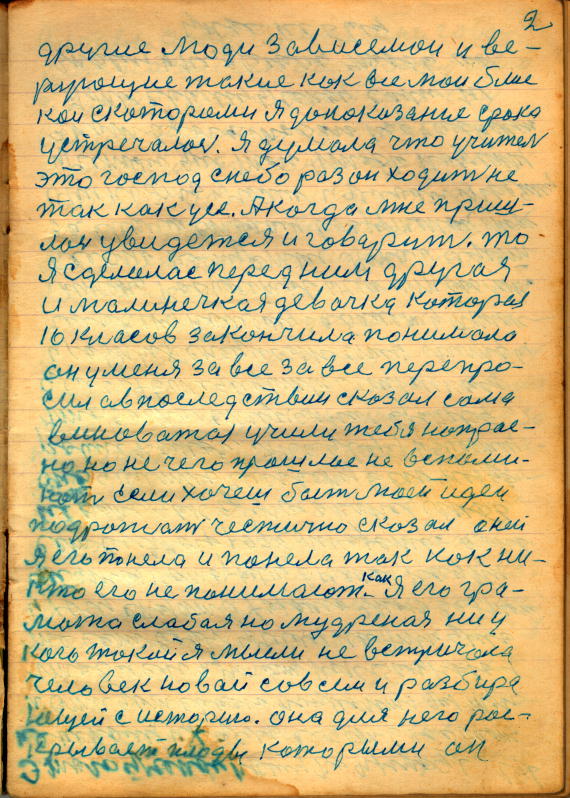 2
другие люди зависемои и ве-
рующие такие как вие мои близ
кои скоторами я допоказание срока
устречалоч. Я думала что учител
это господ снебо раз он ходит не
так как усе. А когда мне приш-
лоч увидется и говарит. то
я сделалас перед ним другая
и малинечкая девачка котораı
10 класов закончила понимала
он уменя за все за все перепро-
сил авпоследствии сказал сама
виноватаı учили тебя напрас-
но но не чего прошлое не вспоми-
нат если хочеш быт маей идеи
подрожат честично сказал о ней
Я его понела и понела так как ни-
кто его не понимают. как Я его гра-
мота слабая но мудреная ни у
кого токой я мыли не встричала
человек новай совсем и разбира
ющей с историю. она для него рас-
крывает плоды которыми он